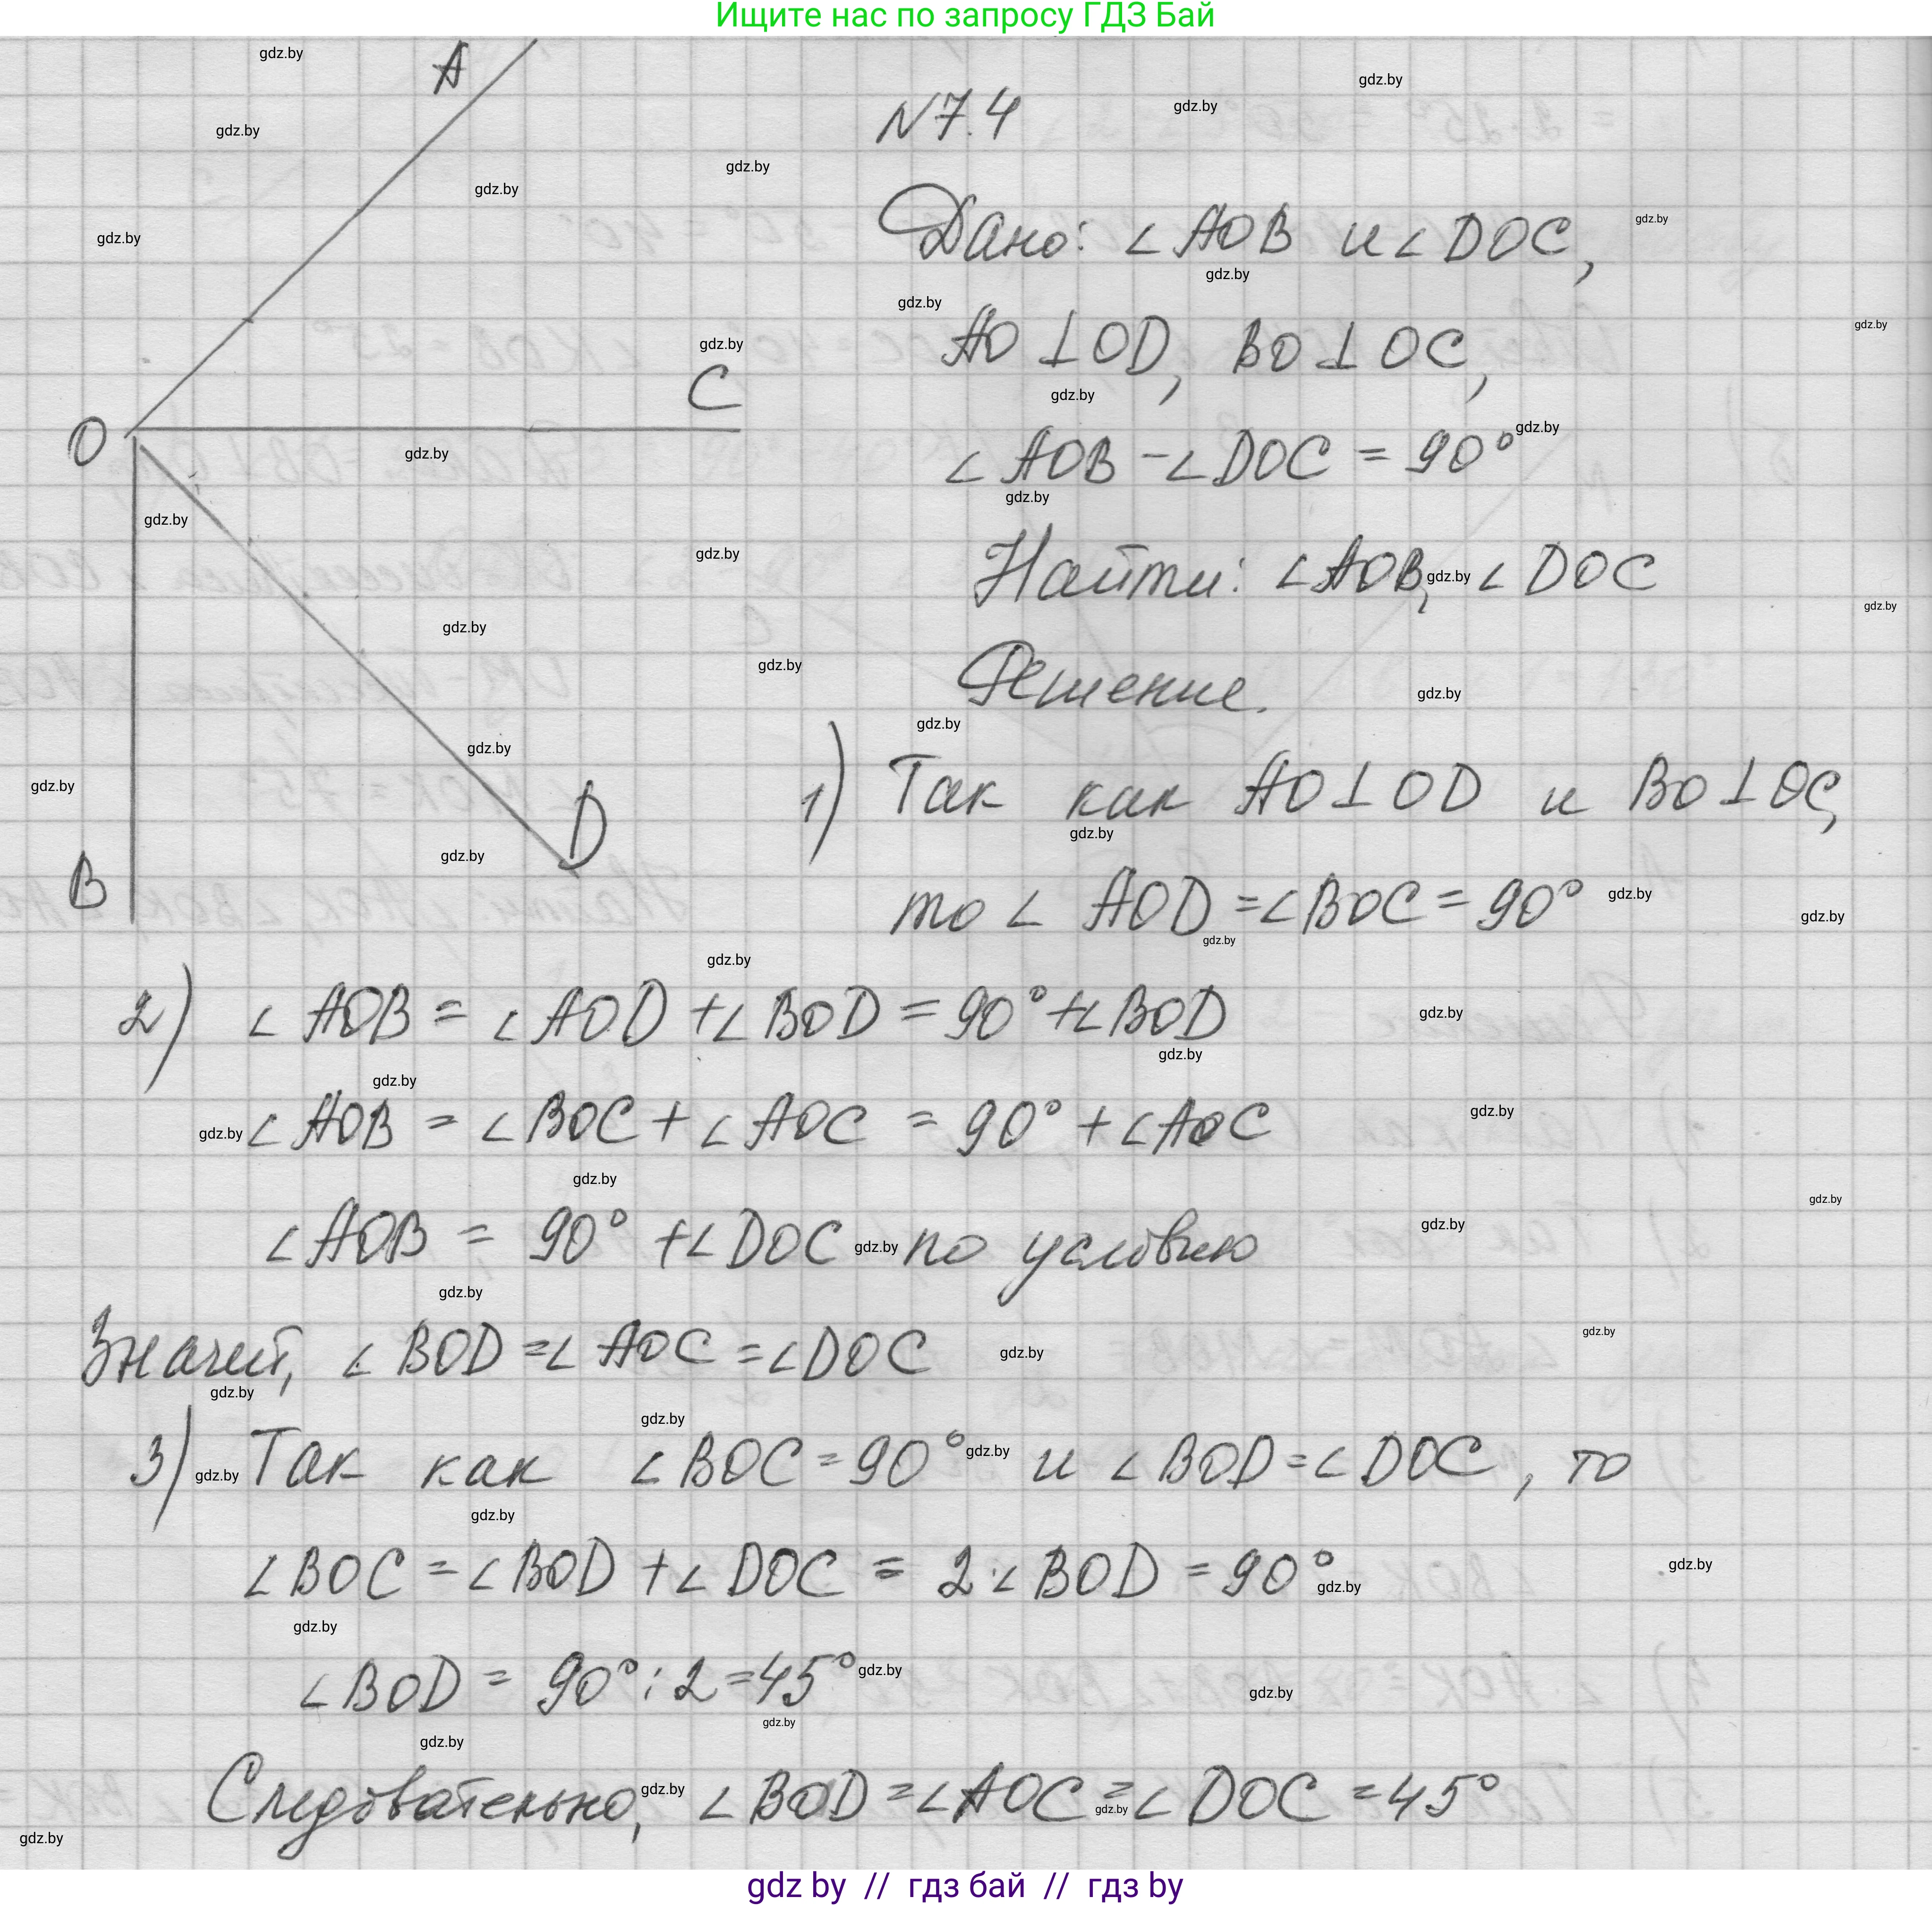 Ищите нас по запросу ГДЗ Бай
A
O
C
B
D
N7.4
Дано: ∠AOB и ∠DOC,
AO⊥OD, BO⊥OC,
∠AOB-∠DOC=90°
Найти: ∠AOB, ∠DOC
Решение.
1) Так как AO⊥OD и BO⊥OC,
то ∠AOD=∠BOC=90°
2) ∠AOB=∠AOD+∠BOD=90°+∠BOD
∠AOB=∠BOC+∠AOC=90°+∠AOC
∠AOB=90°+∠DOC-по условию
Значит, ∠BOD=∠AOC=∠DOC
3) Так как ∠BOC=90° и ∠BOD=∠DOC, то
∠BOC=∠BOD+∠DOC=2·∠BOD=90°
∠BOD=90°:2=45°
Следовательно, ∠BOD=∠AOC=∠DOC=45°
gdz.by
gdz by // гдз бай // гдз by